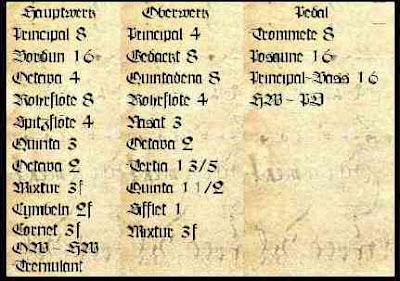 Hauptwerk
Principal 8
Bordun 16
Octava 4
Rohrflöte 8
Spitzflöte 4
Quinta 3
Octava 2
Mixtur 3f
Cymbeln 2f
Cornet 3f
OW - HW
Tremulant
Oberwerk
Principal 4
Gedackt 8
Quintadena 8
Rohrflöte 4
Nasat 3
Octava 2
Tertia 1 3/5
Quinta 1 1/2
Sifflet 1
Mixtur 3f
Pedal
Trommete 8
Posaune 16
Principal-Bass 16
HW - PD